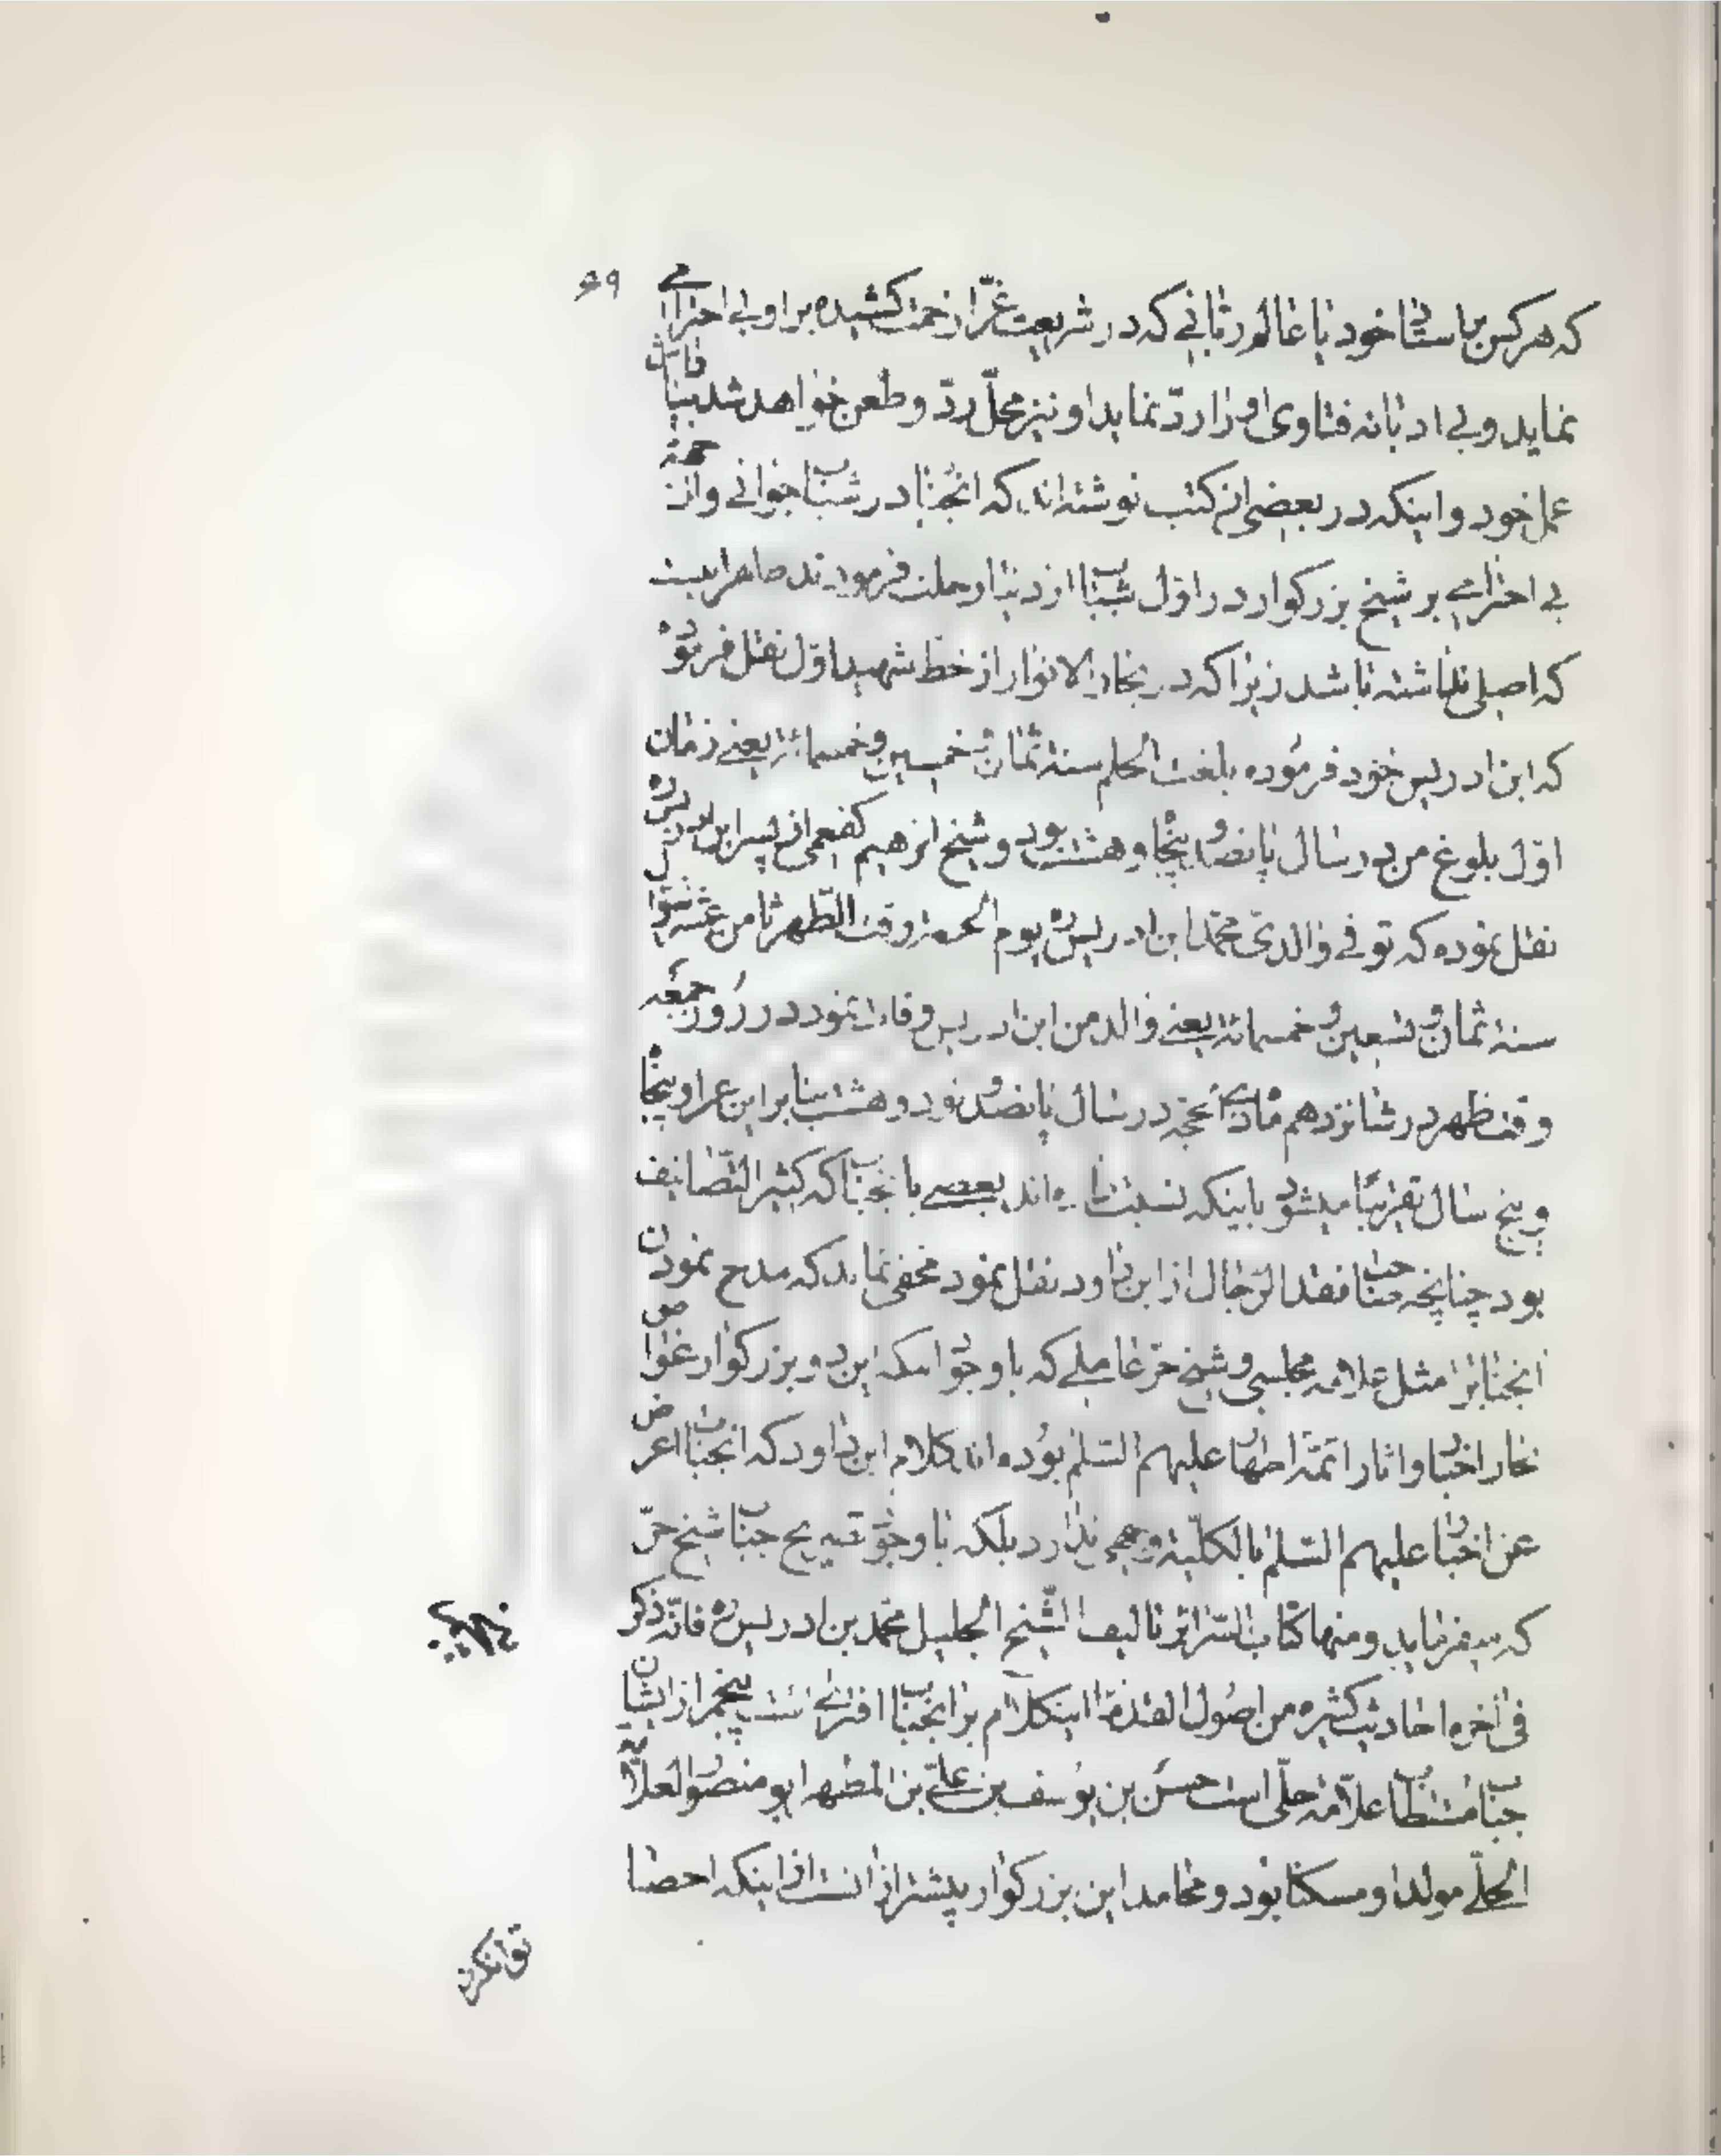 ۶۹
که هرکس با استاد خود یا عالم ربانی که در شریعت غرّا زحمت کشیده بر او بی احترامی
نماید و بی ادبانه فتاوی او را ردّ نماید او نیز محلّ ردّ و طعن خواهد شد
عمل خود و اینکه در بعضی از کتب نوشته اند که انجناب در شباب جوانی و از
بی احترامی بر شیخ بزرکوار در اوّل شباب از دنیا رحلت فرمودند ظاهرا نیست
که اصلی نداشته باشد زیرا که در بحار الانوار از خط شهید اوّل نقل فرموده
که ابن ادریس خود فرموده بلغت الحلم سنة ثمان و خمسین و خمسمائة یعنی زمان
اوّل بلوغ من در سال پانصد و پنجاه و هشت بود و شیخ ابرهیم کفعمی از پسر ابن ادریس ره
نقل نموده که توفی والدی محمّد ابن ادریس ره یوم الجمعة وقت الظّهر ثامن عشر شوال
سنة ثمان و تسعین و خمسمائة یعنی والد من ابن ادریس وفات نمود در روز جمعه
وقت ظهر در شانزدهم ماه در سال پانصد و نود و هشت بنا بر این عمر او پنجاه
و پنج سال تقریبًا میشود با اینکه نسبت داده اند بعضی بانجناب که کثیر التّصانیف
بود چنانچه صاحب نقد الرّجال از ابن داود نقل نمود مخفی نماند که مدح نمودن
انجناب را مثل علامه مجلسی و شیخ حرّ عاملی که با وجود اینکه این دو بزرکوار غواص
بحار اخبار و اثار ائمّه اطهار علیهم السّلم بوده اند کلام ابن داود که انجناب اعرض
عن اخبار علیهم السّلم بالکلیّة وجهی ندارد بلکه با وجود تصریح جناب شیخ حرّ
که میفرماید و منها کتاب السّرائر تالیف الشّیخ الجلیل محمد بن ادریس ره فانّه ذکر
فی اخره احادیث کثیره من اصول القدماء اینکلام بر انجناب افترائست پنجم از ایشان
جناب مستطاب علاّمه حلّی است حسن بن یوسف بن علیّ بن المطهر ابو منصور العلاّمه
الحلّی مولدا و مسکنا بود و محامد این بزرکوار بیشتر از انست از اینکه احصا
توانکرد